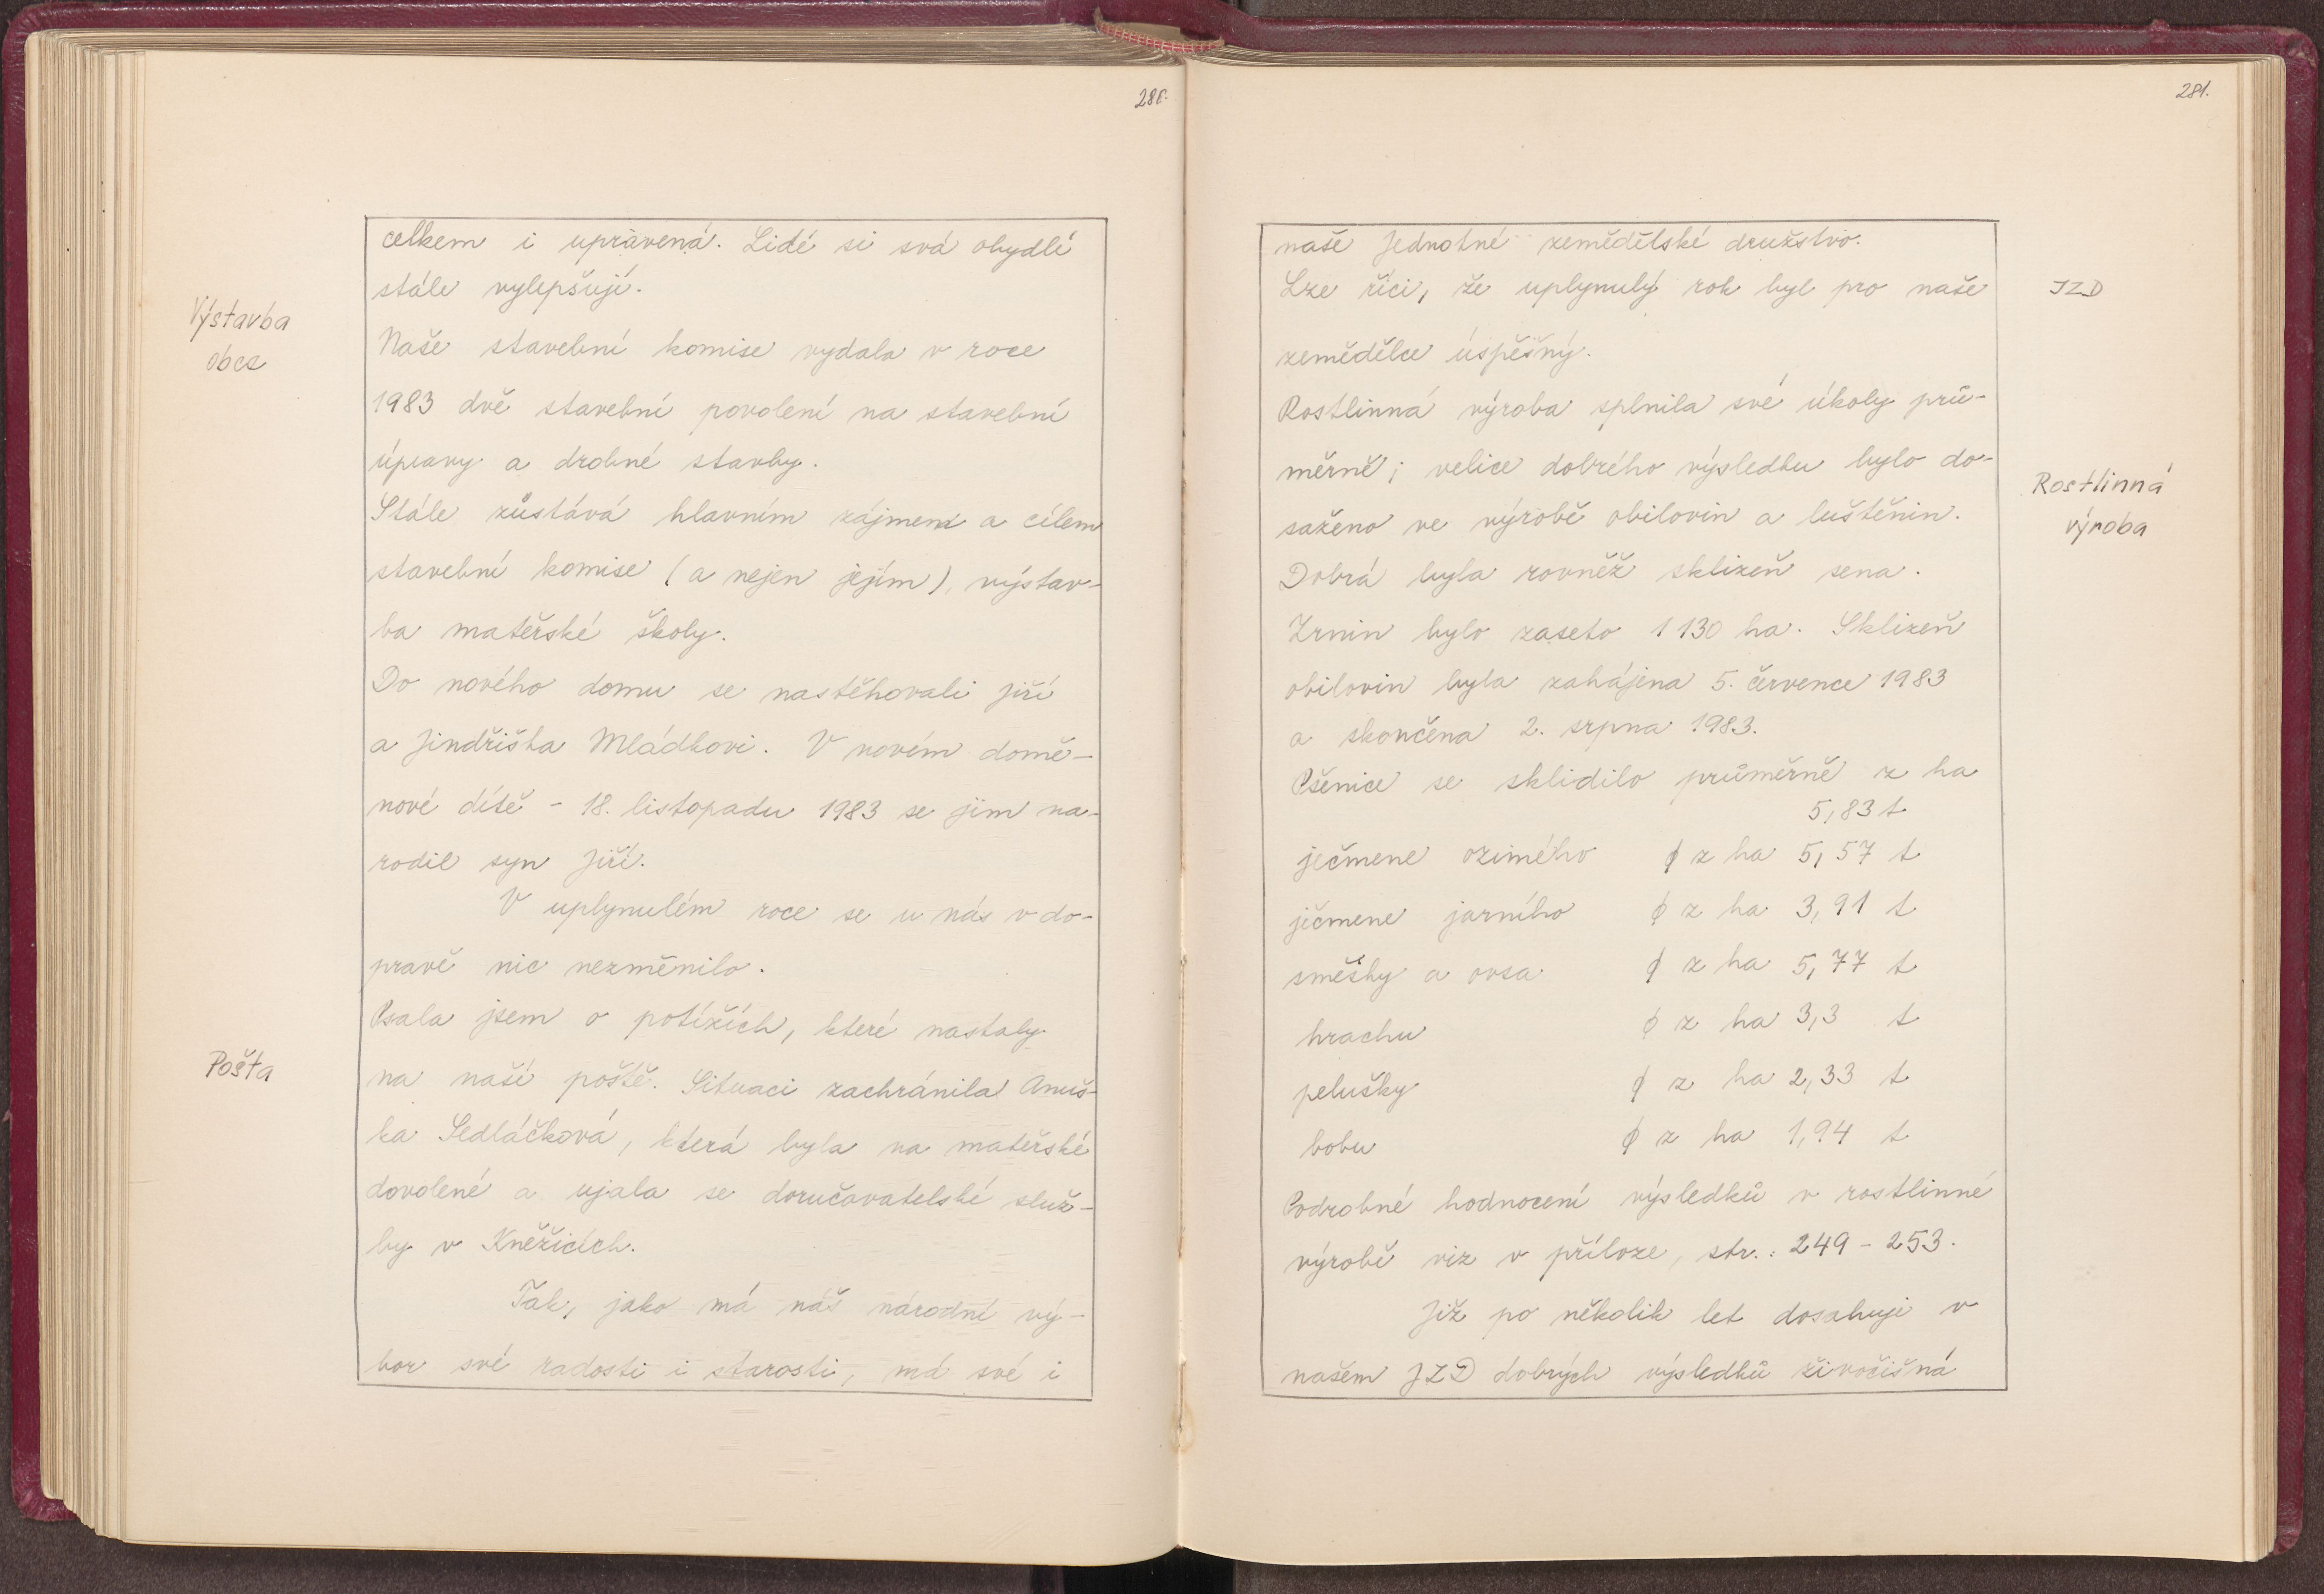 280.
celkem i upravená. Lidé si svá obydlí
stále vylepšují.
Výstavba
obce
Naše stavební komise vydala v roce
1983 dvě stavební povolení na stavební
úpravy a drobné stavby.
Stále zůstává hlavním zájmem a cílem
stavební komise (a nejen jejím), výstav-
ba mateřské školy.
Do nového domu se nastěhovali Jiří
a Jindřiška Mládkovi. V novém domě-
nové dítě - 18. listopadu 1983 se jim na-
rodil syn Jiří.
V uplynulém roce se u nás v do-
pravě nic nezměnilo.
Psala jsem o potížích, které nastaly
Pošta
na naší poště. Situaci zachránila Anuš-
ka Sedláčková, která byla na mateřské
dovolené a ujala se doručovatelské služ-
by v Kněžicích.
Tak, jako má náš národní vý-
bor své radosti i starosti, má své i
281.
naše Jednotné zemědělské družstvo.
Lze říci, že uplynulý rok byl pro naše
JZD
zemědělce úspěšný.
Rostlinná výroba splnila své úkoly prů-
měrně; velice dobrého výsledku bylo do-
Rostlinná
výroba
saženo ve výrobě obilovin a luštěnin.
Dobrá byla rovněž sklizeň sena.
Zrnin bylo zaseto 1 130 ha. Sklizeň
obilovin byla zahájena 5. července 1983
a skončena 2. srpna 1983.
Pšenice se sklidilo průměrně z ha
5,83 t
ječmene ozimého ϕ z ha 5,57 t
ječmene jarního ϕ z ha 3,91 t
směsky a ovsa ϕ z ha 5,77 t
hrachu ϕ z ha 3,3 t
pelušky ϕ z ha 2,33 t
bobu ϕ z ha 1,94 t
Podrobné hodnocení výsledků v rostlinné
výrobě viz v příloze, str.: 249 - 253.
Již po několik let dosahuje v
našem JZD dobrých výsledků živočišná